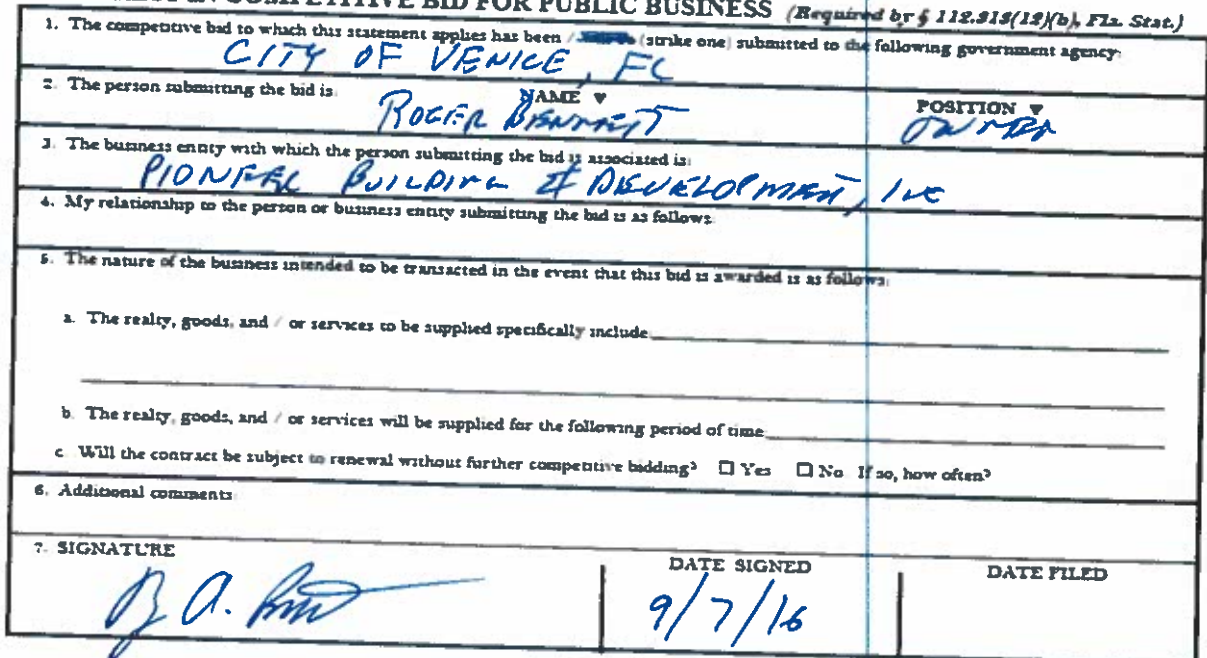 COMPETITIVE BID FOR PUBLIC BUSINESS (Required by § 112.313(12)(b), Fla. Stat.)
1. The competitive bid to which this statement applies has been / (strike one) submitted to the following government agency:
CITY OF VENICE, FL
2. The person submitting the bid is: NAME ▼ POSITION ▼
ROGER OWNER
3. The business entity with which the person submitting the bid is associated is:
PIONEER BUILDING & DEVELOPMENT, INC
4. My relationship to the person or business entity submitting the bid is as follows:
5. The nature of the business intended to be transacted in the event that this bid is awarded is as follows:
a. The realty, goods, and / or services to be supplied specifically include
b. The realty, goods, and / or services will be supplied for the following period of time
c. Will the contract be subject to renewal without further competitive bidding? ☐ Yes ☐ No If so, how often?
6. Additional comments:
7. SIGNATURE DATE SIGNED DATE FILED
9/7/16